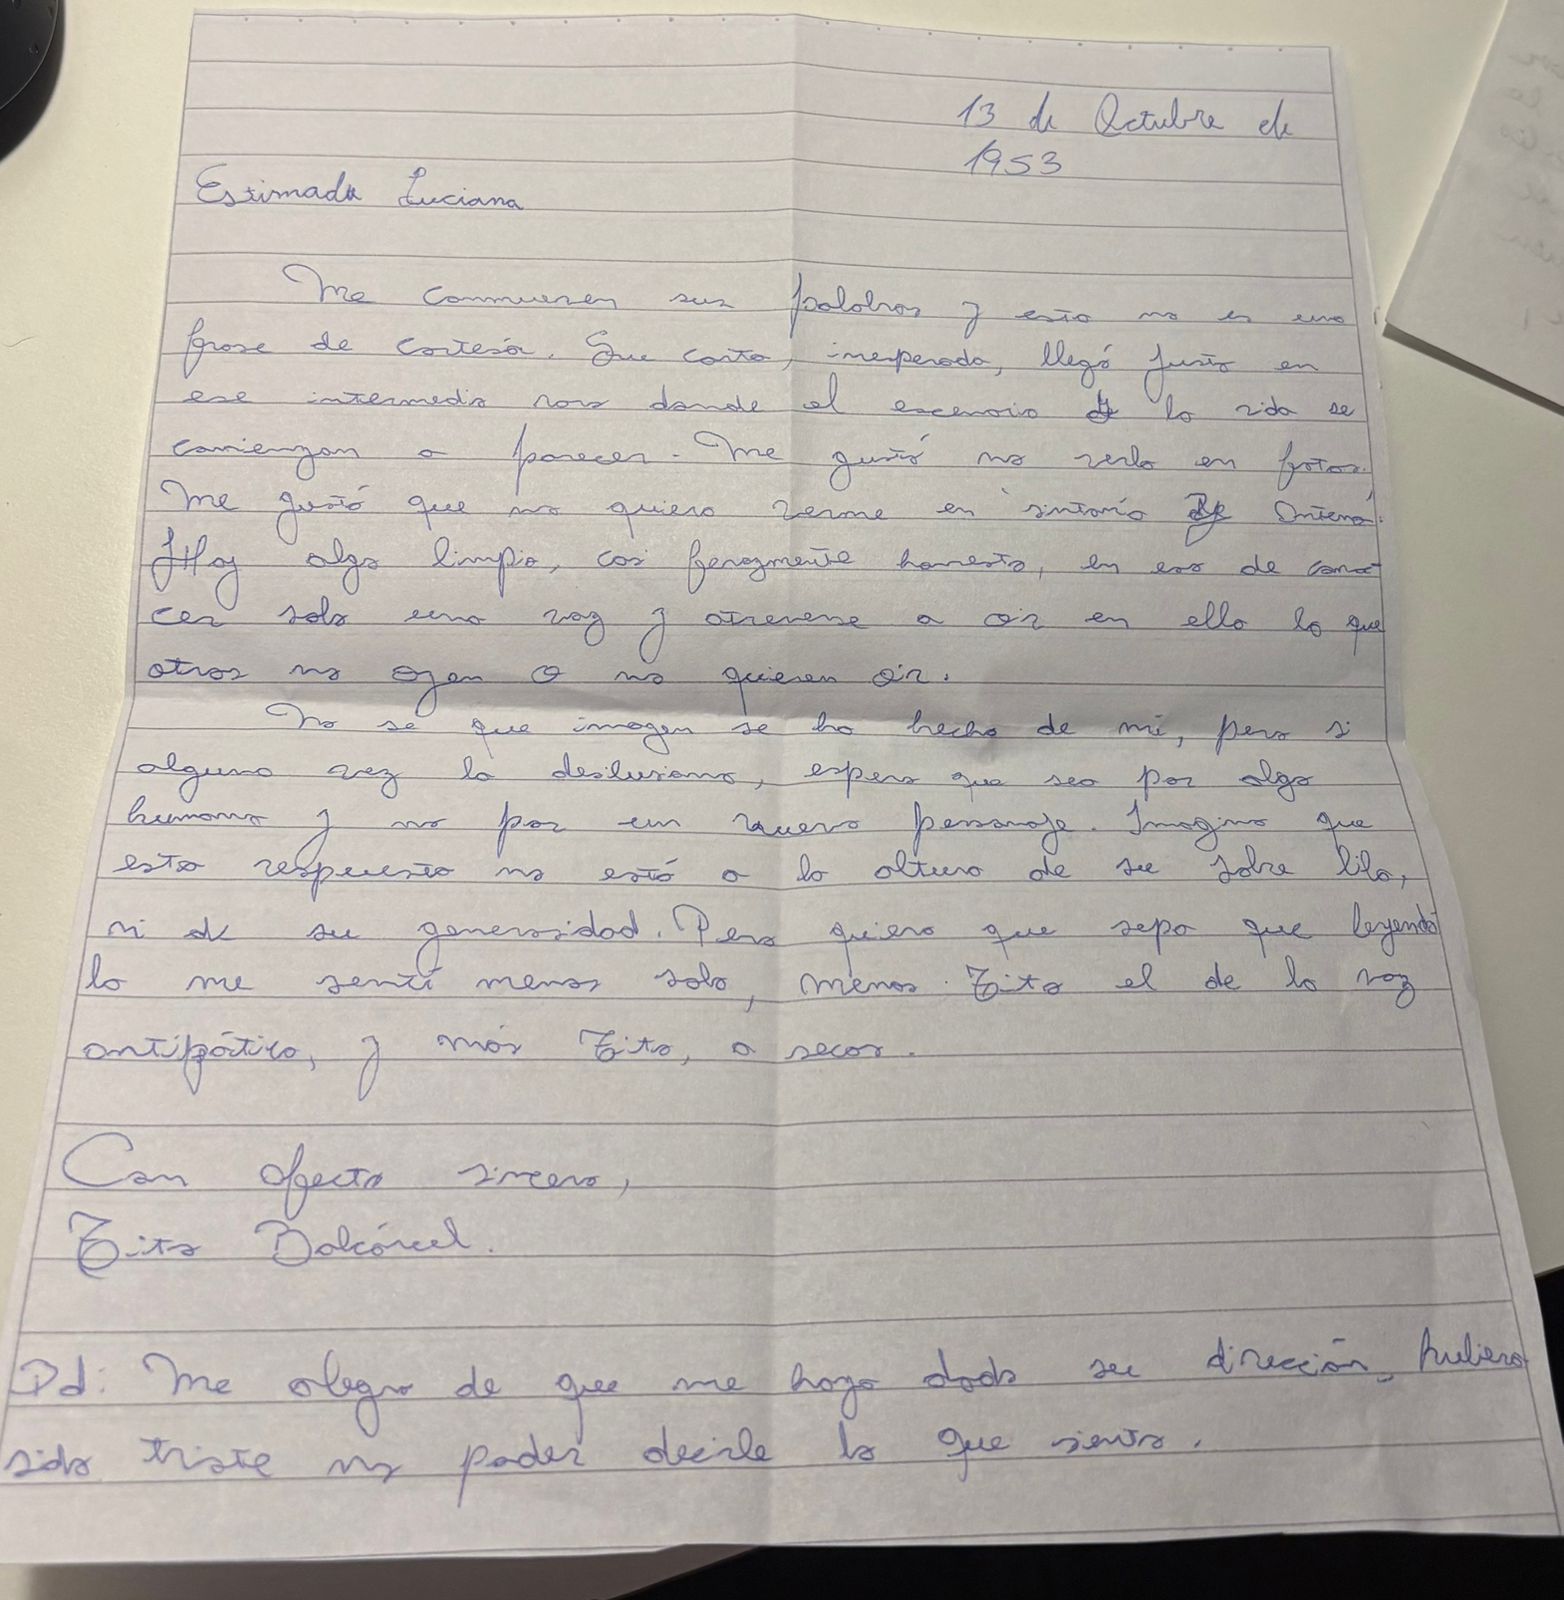 13 de Octubre de
1953
Estimada Luciana
Me conmueven sus palabras y esto no es una
frase de cortesía. Su carta, inesperada, llegó justo en
ese intermedio raro donde el escenario y la vida se
comienzan a parecer. Me gustó no verla en fotos.
Me gustó que no quiera verme en sintonía Antena.
Hay algo limpio, casi ferozmente honesto, en eso de cono
cer solo una voz y atreverse a oír en ella lo que
otros no oyen o no quieren oír.
No sé que imagen se ha hecho de mí, pero si
alguna vez la desilusiono, espero que sea por algo
humano y no por un nuevo personaje. Imagino que
esta respuesta no está a la altura de su sobre lila,
ni de su generosidad. Pero quiero que sepa que leyendo
la me sentí menos solo, menos Tito el de la voz
antipática, y más Tito, a secas.
Con afecto sincero,
Tito Balcárcel.
Pd: Me alegro de que me haya dado su dirección, hubiera
sido triste no poder decirle lo que siento.